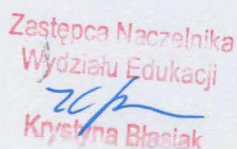 Zastępca Naczelnika
Wydziału Edukacji
Krystyna Błasiak